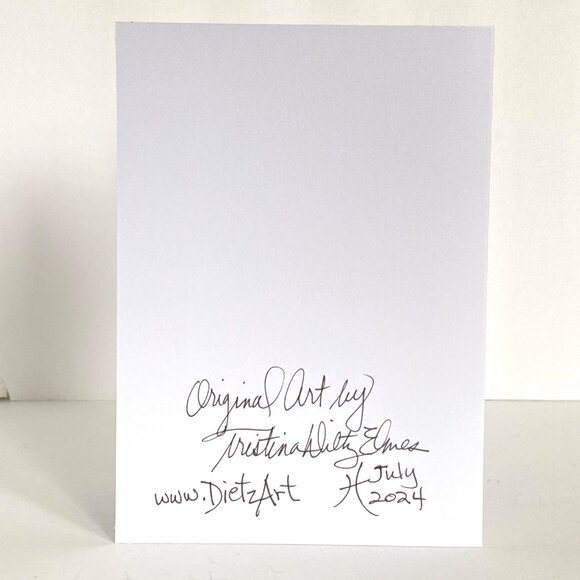 Original Art by
Tristina Dietz Elmes
www.DietzArt July
2024